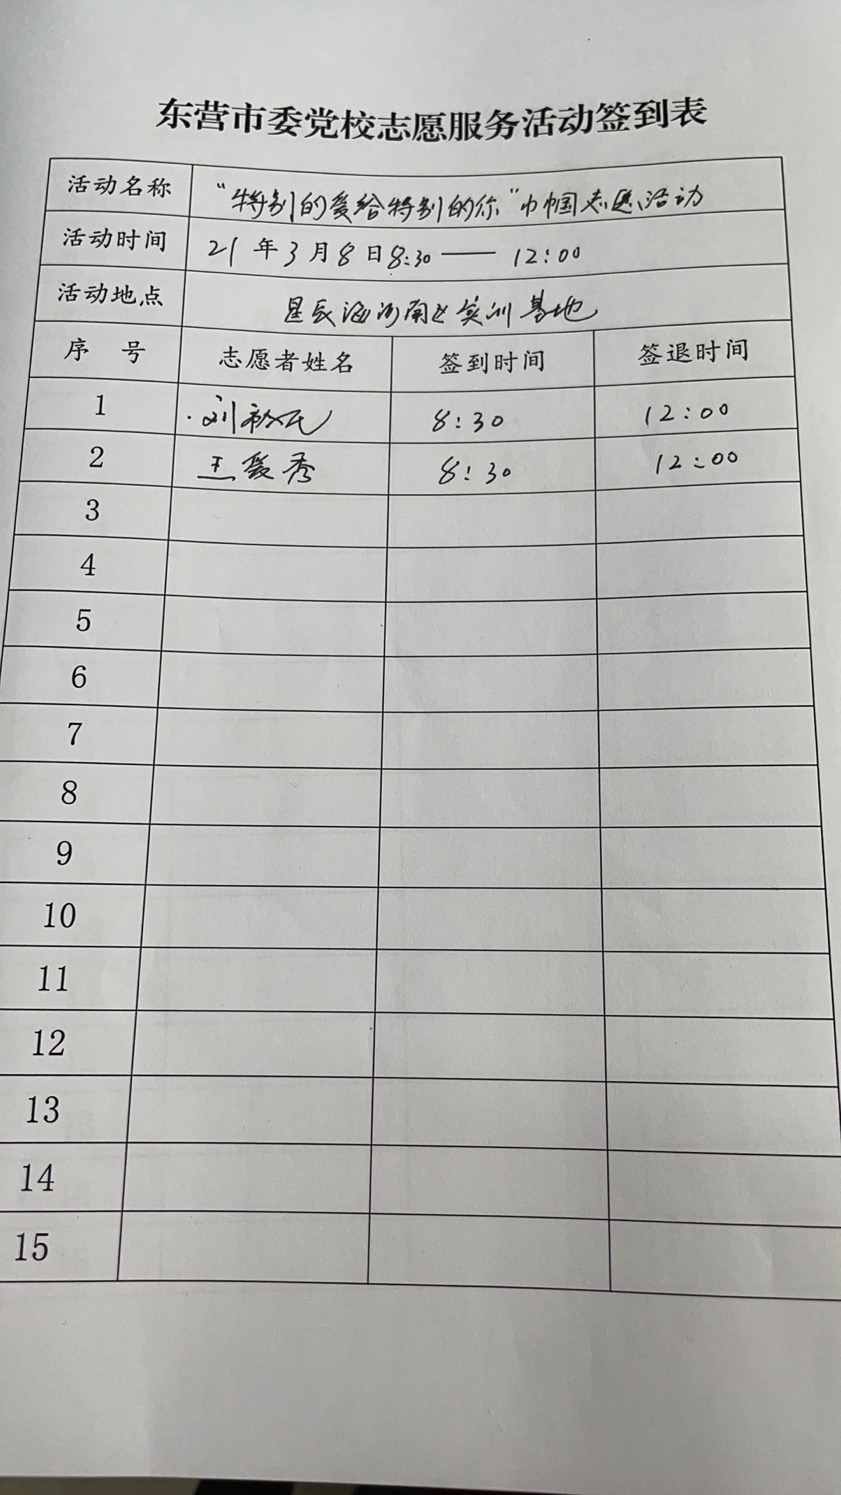 东营市委党校志愿服务活动签到表
活动名称 “特别的爱给特别的你”巾帼志愿活动
活动时间 21年3月8日8:30——12:00
活动地点 星辰河南区实训基地
序 号 志愿者姓名 签到时间 签退时间
1 刘 8:30 12:00
2 王爱秀 8:30 12:00
3
4
5
6
7
8
9
10
11
12
13
14
15